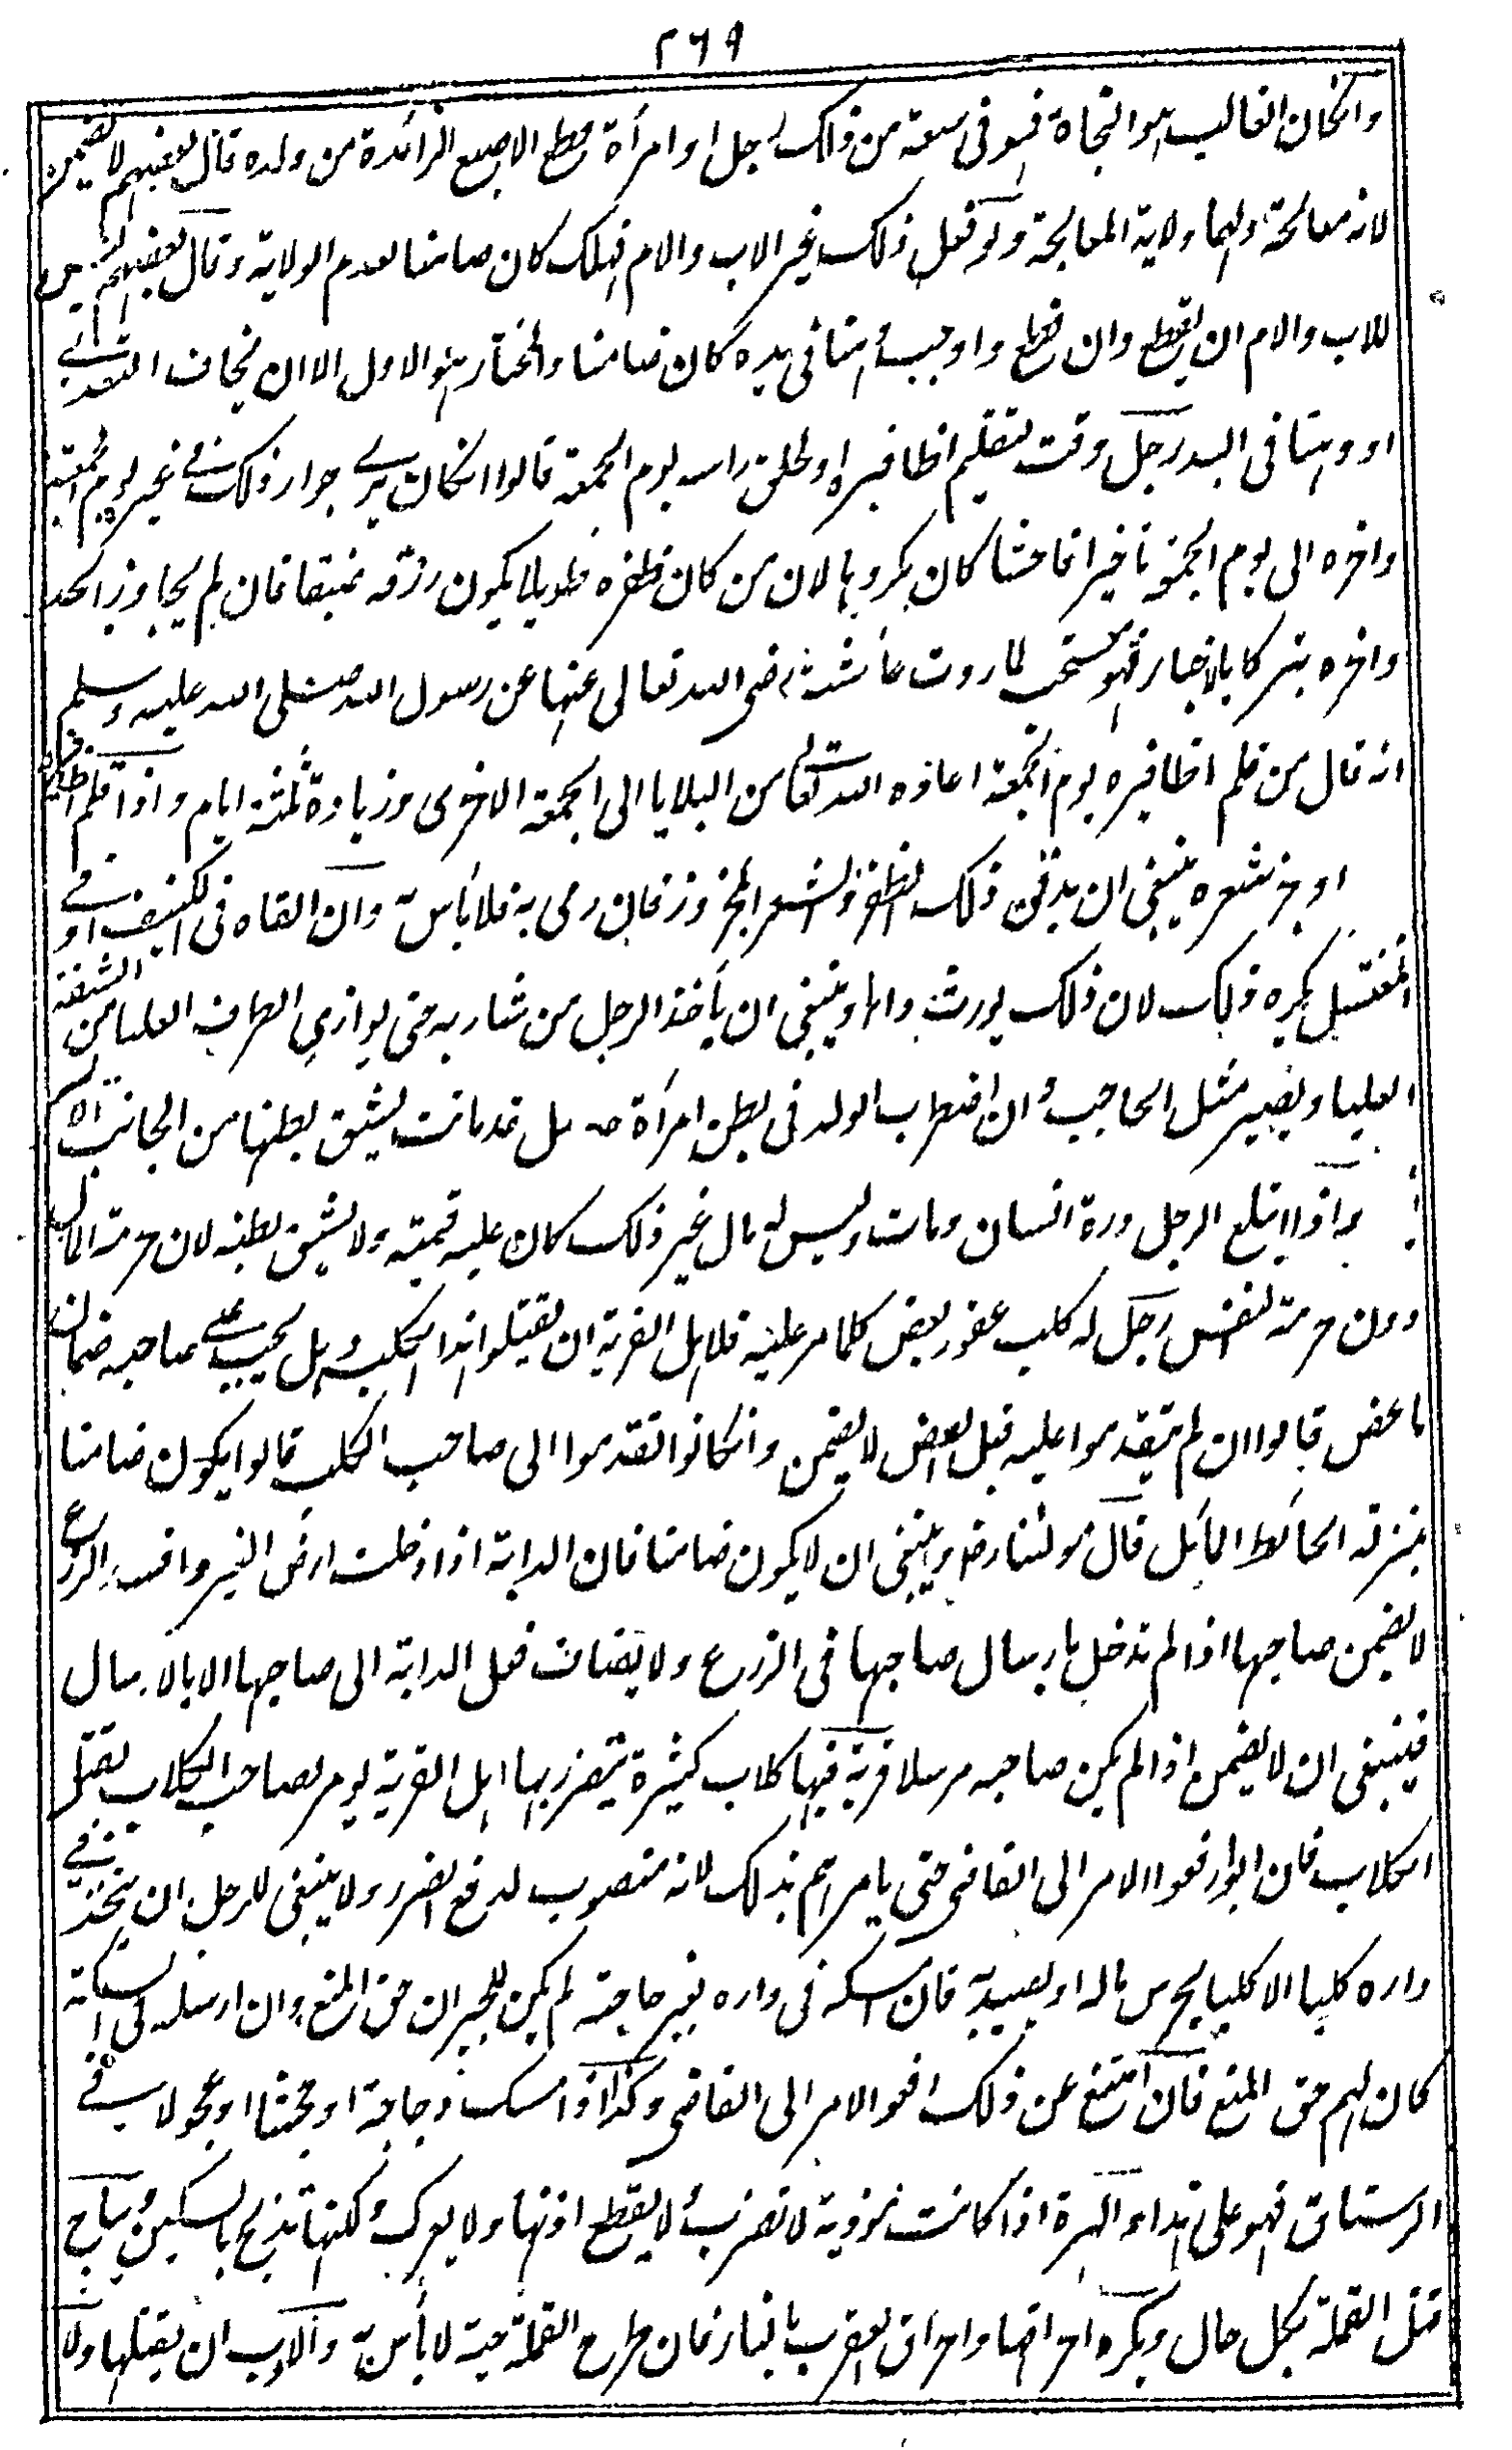 ٢٦٩
وانكان الغالب هو النجاة فهو فى سعة من ذلك رجل او امرأة قطع الاصبع الزائدة من ولده قال بعضهم لا يضمن
لانه معالجة ولهما ولاية المعالجة ولو فعل ذلك غير الاب والام فهلك كان ضامنا لعدم الولاية وقال بعضهم ليس
للاب والام ان يقطع وان قطع واوجب وهنا فى يده كان ضامنا والمختار هو الاول الا ان يخاف التعدى
او وهنا فى اليد رجل وقت لتقليم اظافيره او لحلق راسه يوم الجمعة قالوا انكان يرى جواز ذلك فى غير يوم الجمعة
واخره الى يوم الجمعة تأخيرا فاحشا كان مكروها لان من كان ظفره طويلا يكون رزقه ضيقا فان لم يجاوز الحد
واخره تبركا بالاخبار فهو مستحب لما روت عائشة رضى الله تعالى عنها عن رسول الله صلى الله عليه وسلم
انه قال من قلم اظافيره يوم الجمعة اعاذه الله تعالى من البلايا الى الجمعة الاخرى وزيادة ثلثة ايام واذا قلم اظافيره
او جز شعره ينبغى ان يدفن ذلك الظفر والشعر المجزوز فان رمى به فلا بأس به وان القاه فى الكنيف او فى
المغتسل يكره ذلك لان ذلك يورث داء وينبغى ان يأخذ الرجل من شاربه حتى يوازى الطرف العليا من الشفة
العليا ويصير مثل الحاجب وان اضطرب الولد فى بطن امرأة حامل قد ماتت يشق بطنها من الجانب الايسر
واذا ابتلع الرجل درة انسان ومات وليس له مال غير ذلك كان عليه قيمته ولا يشق بطنه لان حرمة المال
دون حرمة النفس رجل له كلب عقور يعض كلما مر عليه فلاهل القرية ان يقتلوا هذا الكلب وهل يجب على صاحبه ضمان
ما عض قالوا ان لم يتقدموا عليه قبل العض لا يضمن وانكانوا تقدموا الى صاحب الكلب قالوا يكون ضامنا
بمنزلة الحائط المائل قال مولنا رض وينبغى ان لا يكون ضامنا فان الدابة اذا دخلت ارض الغير وافسدت الزرع
لا يضمن صاحبها اذا لم تدخل بارسال صاحبها فى الزرع ولا يضاف فعل الدابة الى صاحبها الا بالارسال
فينبغى ان لا يضمن اذا لم يكن صاحبه مرسلا قرية فيها كلاب كثيرة يتضرر بها اهل القرية يومر لصاحب الكلاب بقتل
الكلاب فان ابوا رفعوا الامر الى القاضى حتى يامرهم بذلك لانه منصوب لدفع الضرر ولا ينبغى للرجل ان يتخذ فى
داره كلبا الا كلبا يحرس ماله او يصيد به فان امسكه فى داره بغير حاجة لم يكن للجيران حق المنع وان ارسله فى السكة
كان لهم حق المنع فان امتنع عن ذلك رفعوا الامر الى القاضى وكذا اذا امسك دجاجة او جحشا او عجولا فى
الرستاق فهو على هذا والهرة اذا كانت موذية لا تضرب ولا يقطع اذنها ولا يعرك ولكنها تذبح بالسكين ويباح
قتل القملة بكل حال ويكره احراقها واحراق العقرب بالنار فان طرح القملة حية لا بأس به والادب ان يقتلها ولا